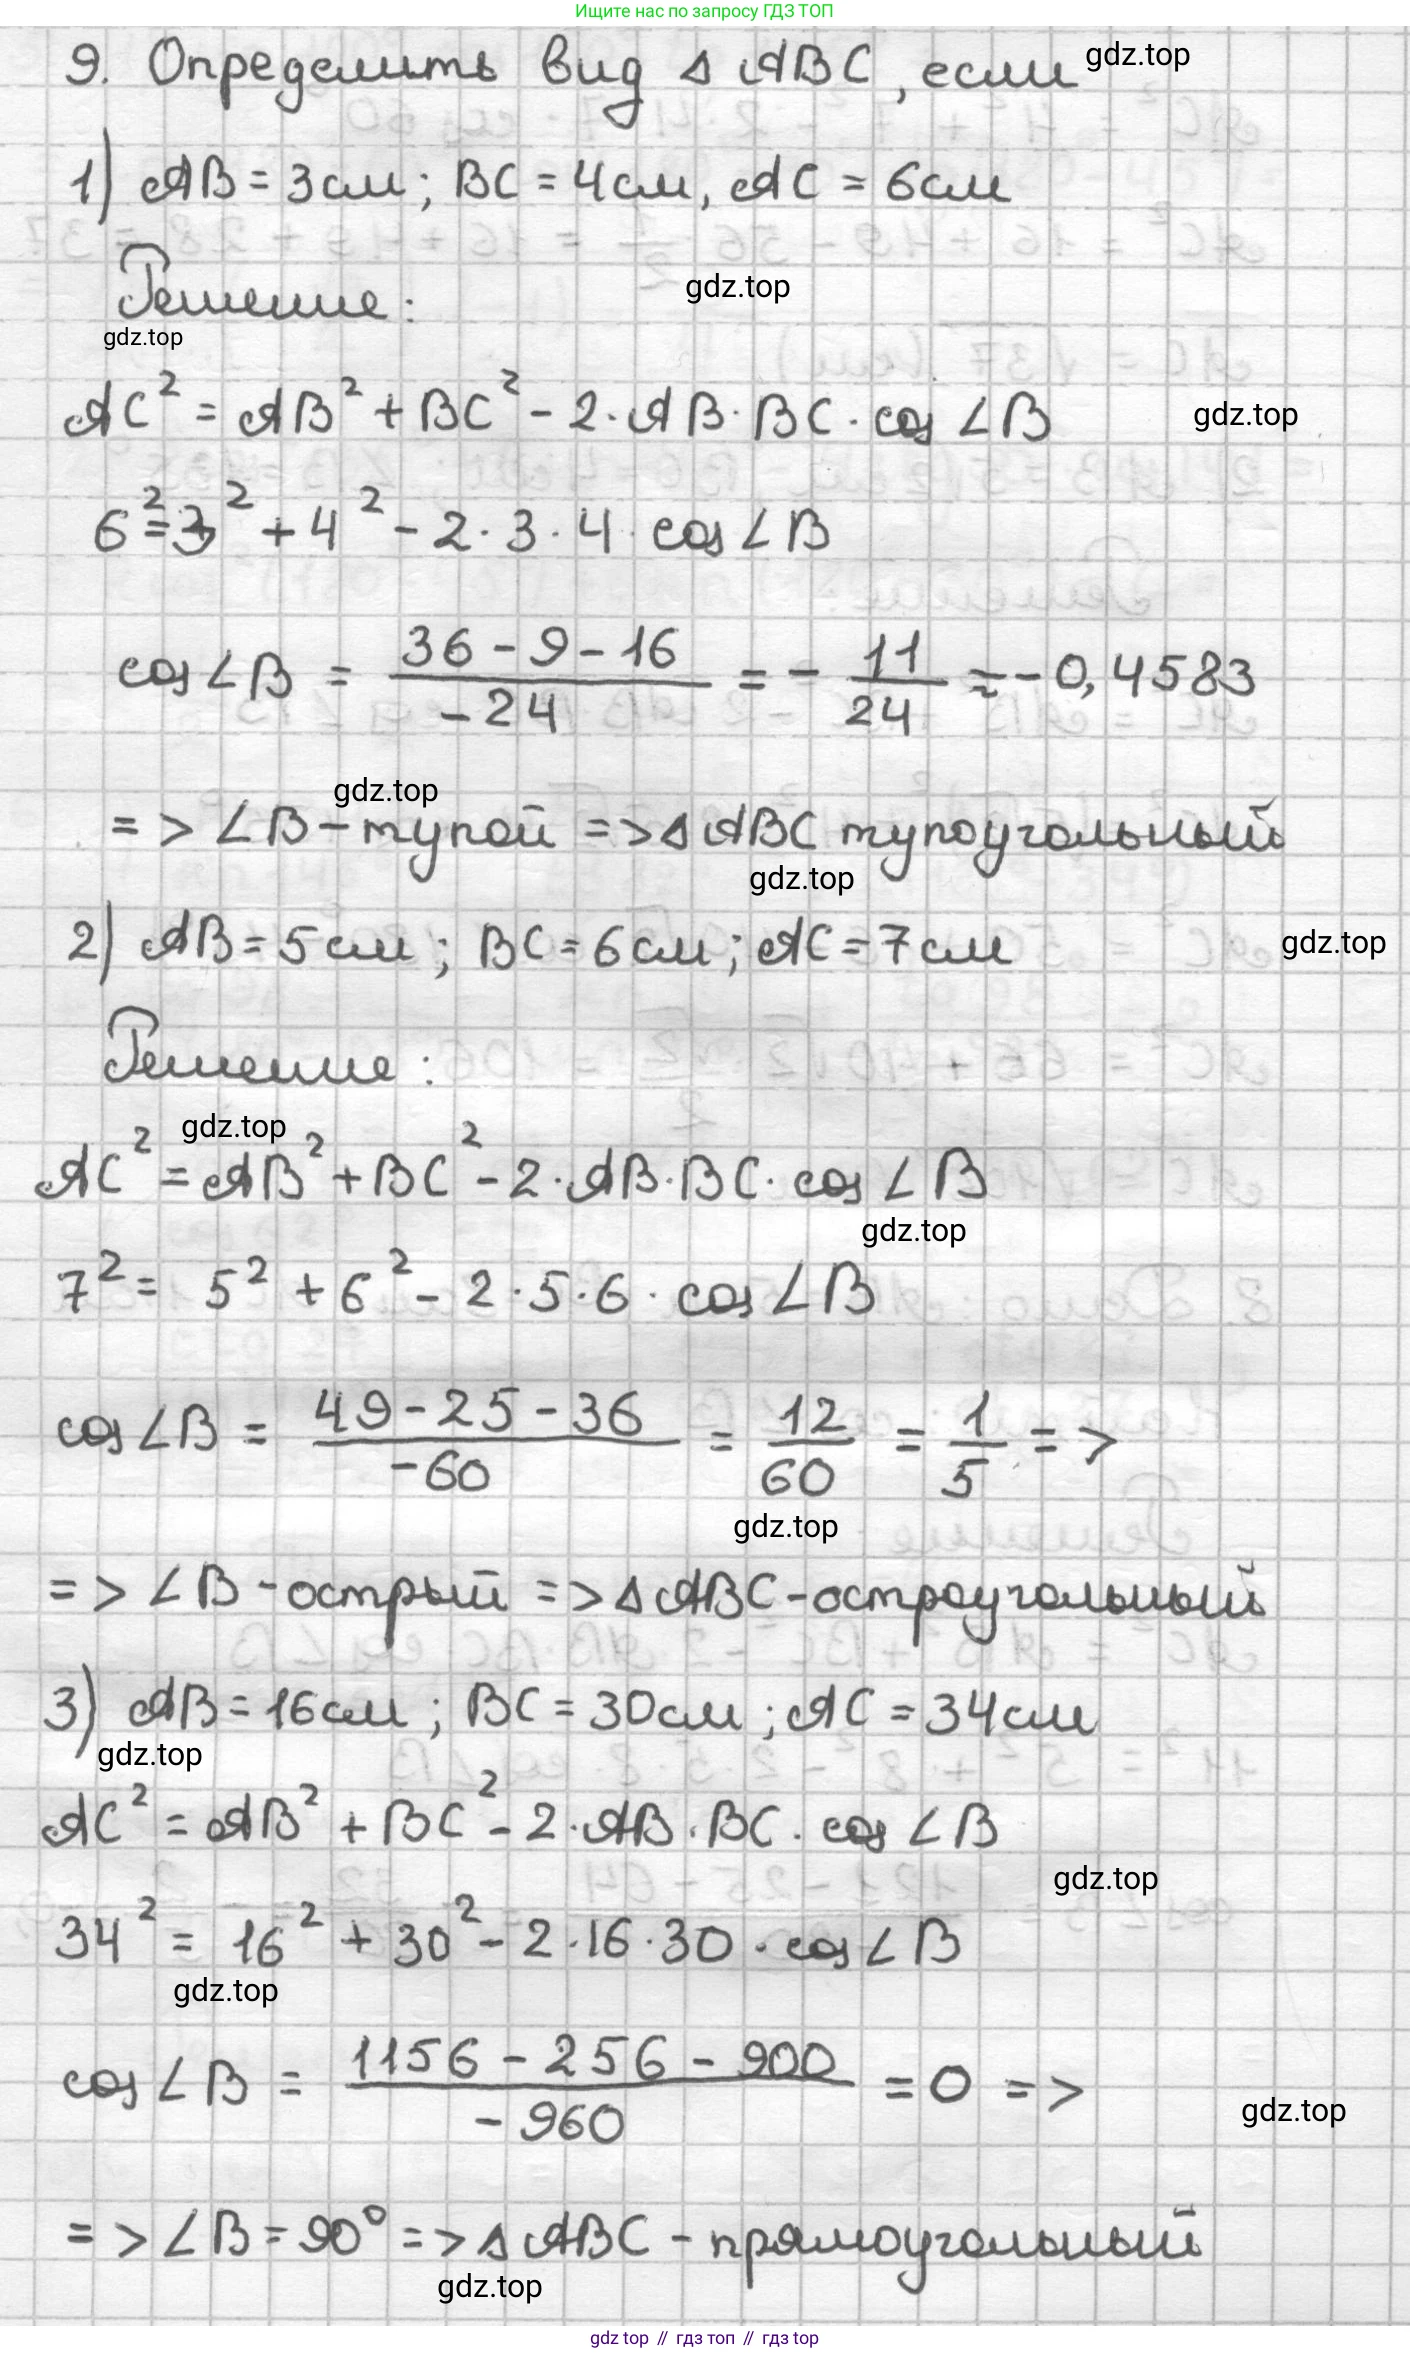 Ищите нас по запросу ГДЗ ТОП
9. Определить вид Δ ABC, если gdz.top
1) AB = 3см; BC = 4см, AC = 6см
Решение: gdz.top
gdz.top
AC² = AB² + BC² - 2 · AB · BC · cos ∠B gdz.top
6² = 3² + 4² - 2 · 3 · 4 · cos ∠B
cos ∠B = (36 - 9 - 16)/(-24) = - 11/24 ≈ - 0,4583
gdz.top
=> ∠B - тупой => Δ ABC тупоугольный
gdz.top
2) AB = 5см; BC = 6см; AC = 7см gdz.top
Решение:
gdz.top
AC² = AB² + BC² - 2 · AB · BC · cos ∠B
gdz.top
7² = 5² + 6² - 2 · 5 · 6 · cos ∠B
cos ∠B = (49 - 25 - 36)/(-60) = 12/60 = 1/5 =>
gdz.top
=> ∠B - острый => Δ ABC - остроугольный
3) AB = 16см; BC = 30см; AC = 34см
gdz.top
AC² = AB² + BC² - 2 · AB · BC · cos ∠B
gdz.top
34² = 16² + 30² - 2 · 16 · 30 · cos ∠B
gdz.top
cos ∠B = (1156 - 256 - 900)/(-960) = 0 =>
gdz.top
=> ∠B = 90° => Δ ABC - прямоугольный
gdz.top
gdz top // гдз топ // гдз top